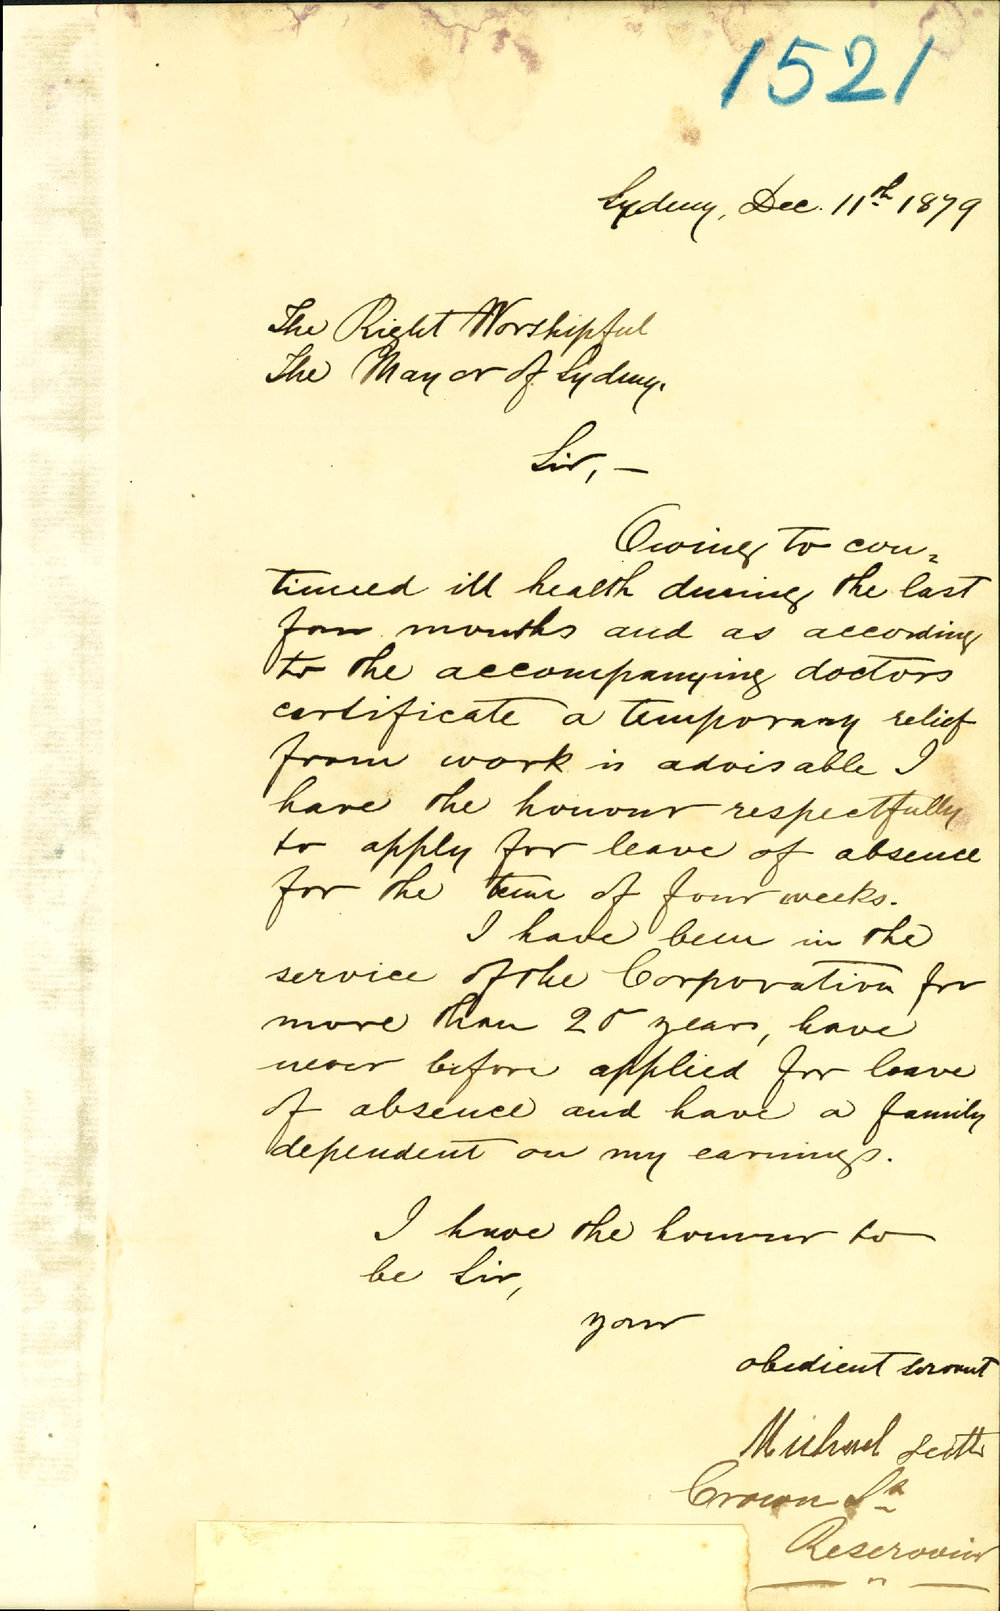 1521
Sydney, Dec. 11th 1879
The Right Worshipful
The Mayor of Sydney.
Sir, —
Owing to con=
tinued ill health during the last
four months and as according
to the accompanying doctors
certificate a temporary relief
from work is advisable I
have the honour respectfully
to apply for leave of absence
for the term of four weeks.
I have been in the
service of the Corporation for
more than 20 years, have
never before applied for leave
of absence and have a family
dependent on my earnings.
I have the honour to
be Sir,
your
obedient servant
Michael
Crown St
Reservoir